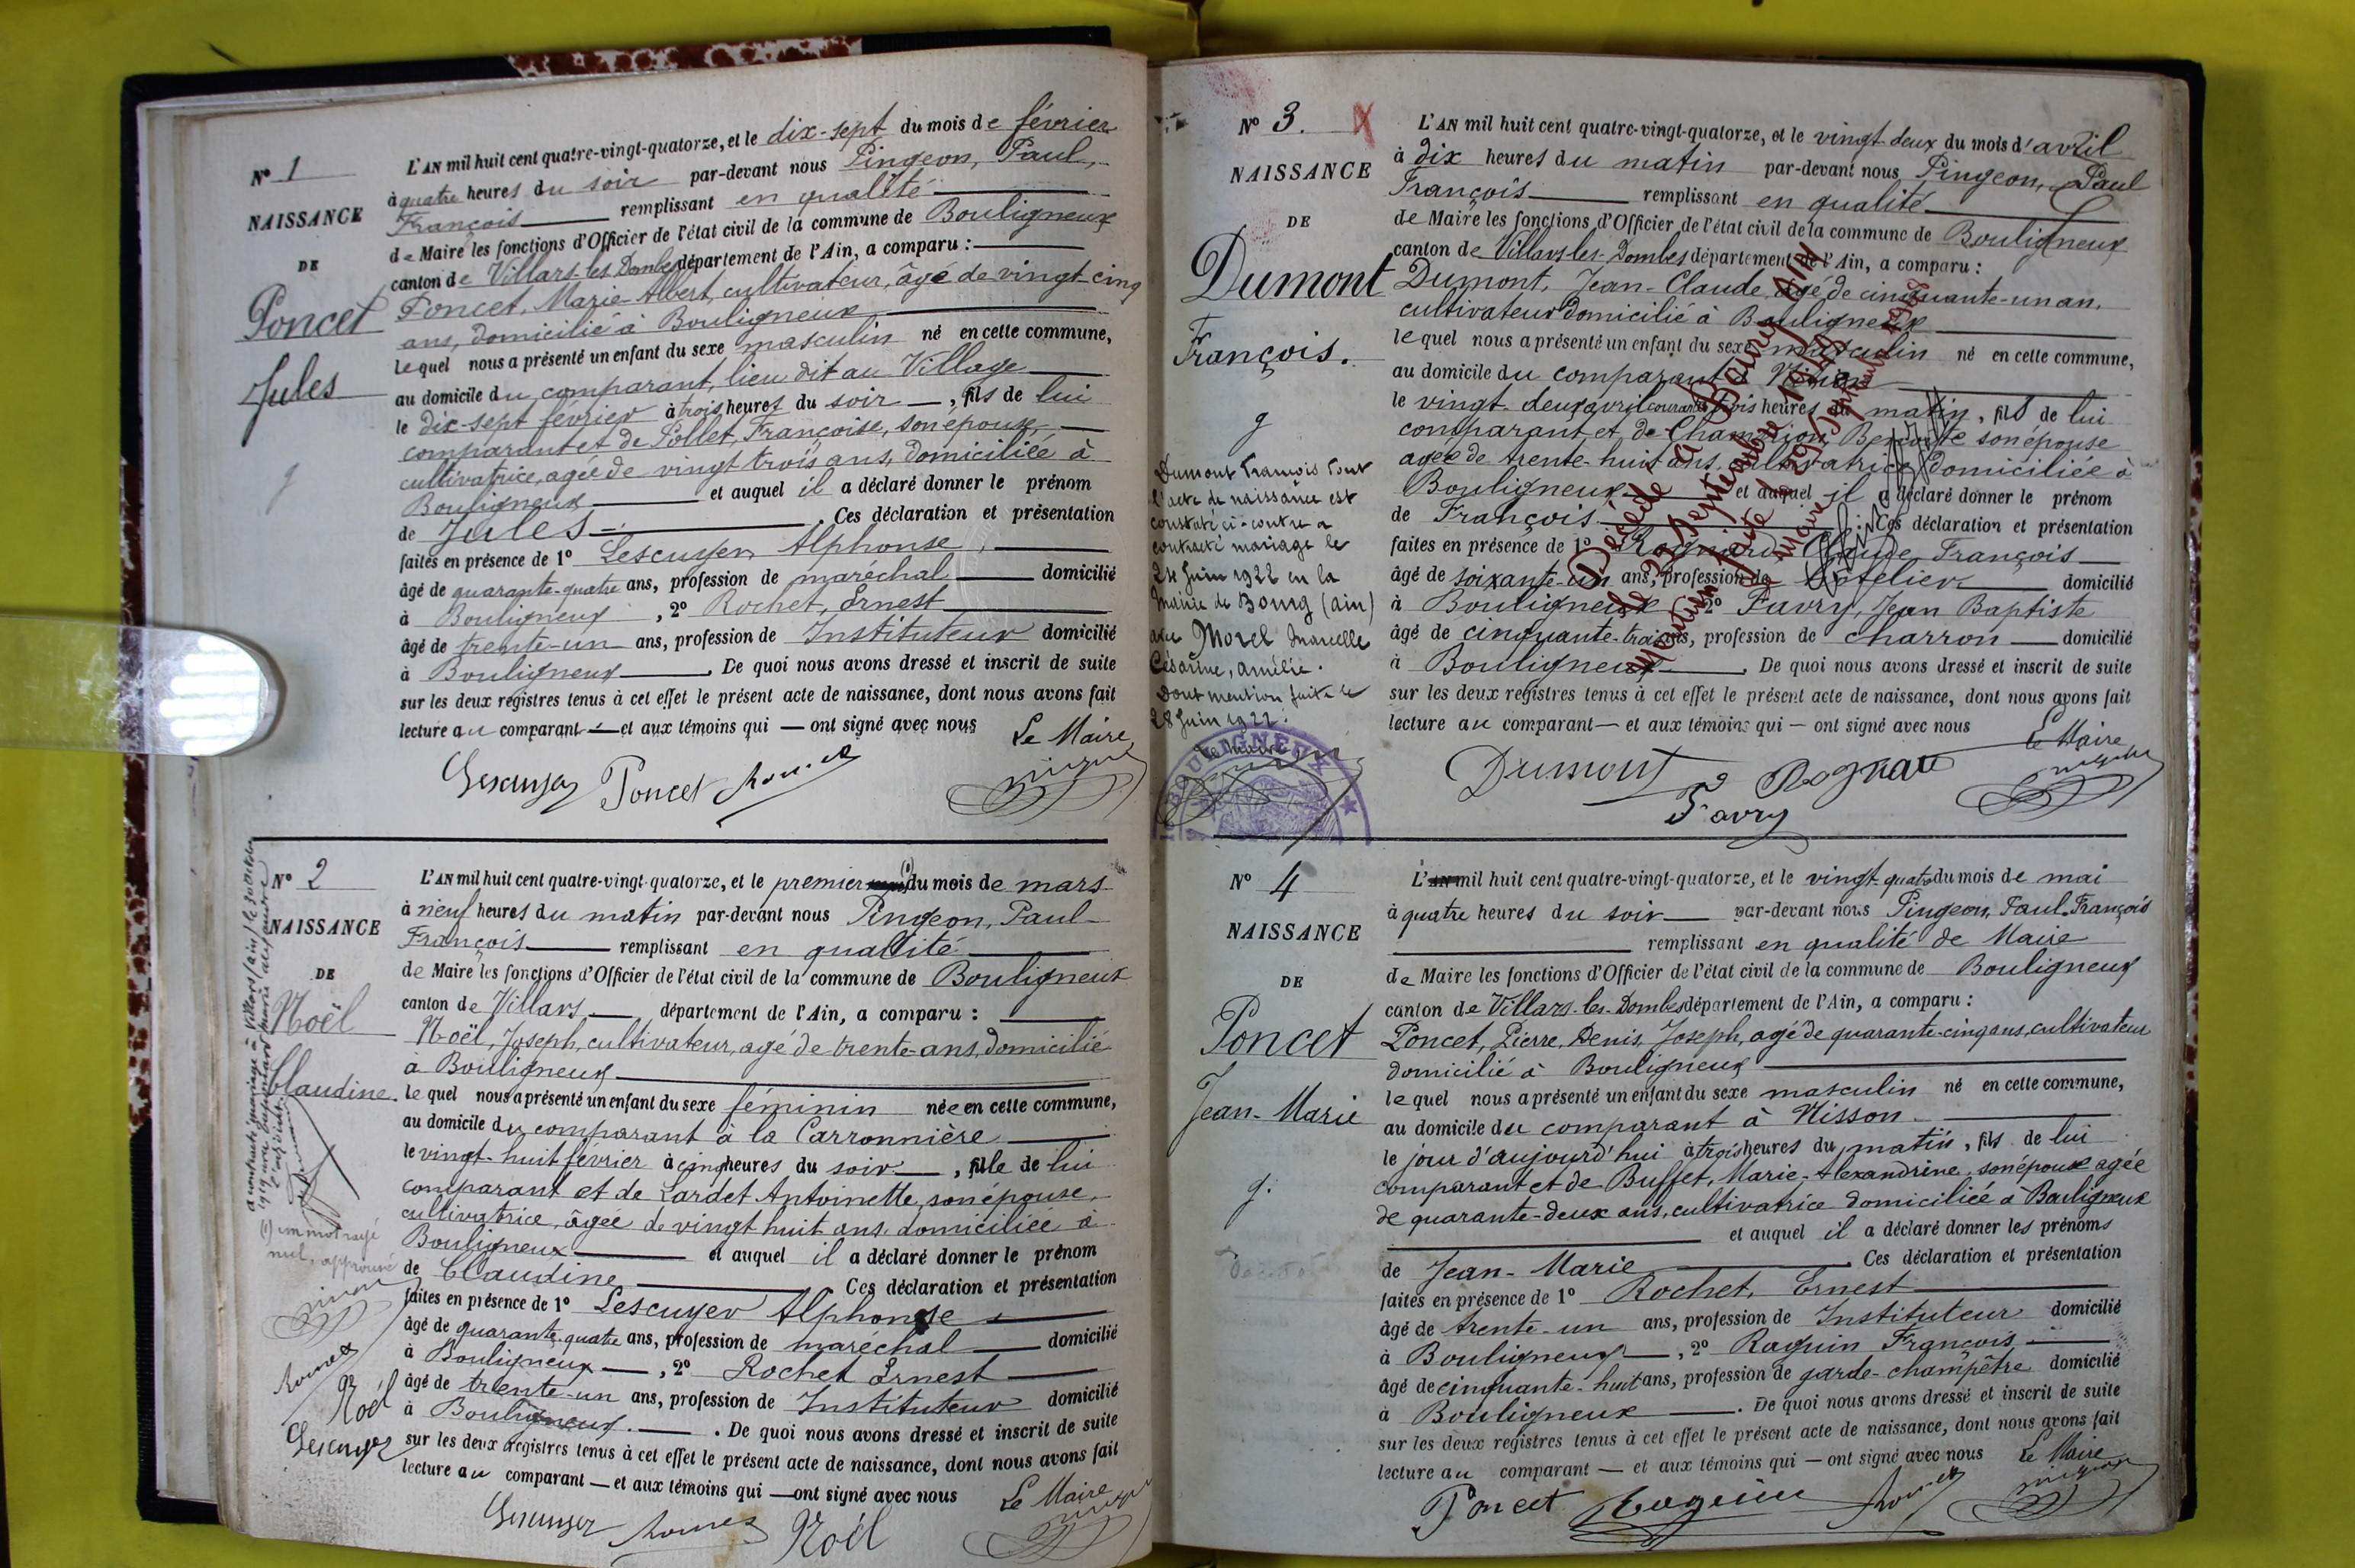 N° 1
NAISSANCE
DE
Poncet
Jules
g
L'AN mil huit cent quatre-vingt-quatorze, et le dix-sept du mois de février
à quatre heures du soir par-devant nous Pingeon, Paul,
François remplissant en qualité
de Maire les fonctions d'Officier de l'état civil de la commune de Bouligneux
canton de Villars-les-Dombes département de l'Ain, a comparu :
Poncet, Marie-Albert, cultivateur, âgé de vingt-cinq
ans, domicilié à Bouligneux
lequel nous a présenté un enfant du sexe masculin né en cette commune,
au domicile du comparant, lieu dit au Village
le dix-sept février à trois heures du soir —, fils de lui
comparant et de Pollet, Françoise, son épouse,
cultivatrice, agée de vingt trois ans, domiciliée à
Bouligneux et auquel il a déclaré donner le prénom
de Jules . Ces déclaration et présentation
faites en présence de 1° Lescuyer Alphonse,
âgé de quarante-quatre ans, profession de maréchal domicilié
à Bouligneux , 2° Rochet, Ernest
âgé de trente-un ans, profession de Instituteur domicilié
à Bouligneux . De quoi nous avons dressé et inscrit de suite
sur les deux registres tenus à cet effet le présent acte de naissance, dont nous avons fait
lecture au comparant — et aux témoins qui — ont signé avec nous
Le Maire
Lescuyer Poncet
N° 2
NAISSANCE
DE
Noël
Claudine.
a contracté mariage à Villars (ain) le 30 Octobre
1919 avec
(1) un mot rayé
nul, approuvé
Noël
Lescuyer
L'AN mil huit cent quatre-vingt-quatorze, et le premier (1) du mois de mars
à neuf heures du matin par-devant nous Pingeon, Paul
François remplissant en qualité
de Maire les fonctions d'Officier de l'état civil de la commune de Bouligneux
canton de Villars — département de l'Ain, a comparu :
Noël, Joseph, cultivateur, agé de trente-ans, domicilié
à Bouligneux
lequel nous a présenté un enfant du sexe féminin née en cette commune,
au domicile du comparant à la Carronnière
le vingt-huit février à cinq heures du soir —, fille de lui
comparant et de Lardet Antoinette, son épouse,
cultivatrice, âgée de vingt huit ans domiciliée à
Bouligneux et auquel il a déclaré donner le prénom
de Claudine Ces déclaration et présentation
faites en présence de 1° Lescuyer Alphonse
âgé de quarante-quatre ans, profession de maréchal domicilié
à Bouligneux —, 2° Rochet Ernest
âgé de trente-un ans, profession de Instituteur domicilié
à Bouligneux. — . De quoi nous avons dressé et inscrit de suite
sur les deux registres tenus à cet effet le présent acte de naissance, dont nous avons fait
lecture au comparant — et aux témoins qui — ont signé avec nous
Le Maire
Lescuyer Noël
N° 3.
NAISSANCE
DE
Dumont
François.
g
Dumont François dont
l'acte de naissance est
constaté ci-contre a
contracté mariage le
24 Juin 1922 en la
Mairie de Bourg (ain)
avec Morel Marcelle
Césarine, Amélie.
Dont mention faite le
28 Juin 1922.
Le Maire
BOULIGNEUX
L'AN mil huit cent quatre-vingt-quatorze, et le vingt-deux du mois d'avril
à dix heures du matin par-devant nous Pingeon, Paul
François remplissant en qualité
de Maire les fonctions d'Officier de l'état civil de la commune de Bouligneux
canton de Villars-les-Dombes département de l'Ain, a comparu :
Dumont, Jean-Claude, agé de cinquante-un an,
cultivateur domicilié à Bouligneux
lequel nous a présenté un enfant du sexe masculin né en cette commune,
au domicile du comparant à
le vingt-deux avril courant à trois heures du matin, fils de lui
comparant et de Champion, Benoite son épouse
agée de trente-huit ans, cultivatrice, domiciliée à
Bouligneux et auquel il a déclaré donner le prénom
de François . Ces déclaration et présentation
faites en présence de 1° Rognard, Claude François
âgé de soixante-un ans, profession de domicilié
à Bouligneux, 2° Favry, Jean Baptiste
âgé de cinquante-trois ans, profession de charron domicilié
à Bouligneux . De quoi nous avons dressé et inscrit de suite
sur les deux registres tenus à cet effet le présent acte de naissance, dont nous avons fait
lecture au comparant — et aux témoins qui — ont signé avec nous
Le Maire
Dumont
Favry
Décédé à Bourg
Mention faite le 29 Septembre
N° 4
NAISSANCE
DE
Poncet
Jean-Marie
g.
L'AN mil huit cent quatre-vingt-quatorze, et le vingt-quatre du mois de mai
à quatre heures du soir par-devant nous Pingeon, Paul François
remplissant en qualité de Maire
de Maire les fonctions d'Officier de l'état civil de la commune de Bouligneux
canton de Villars-les-Dombes département de l'Ain, a comparu :
Poncet, Pierre, Denis, Joseph, agé de quarante-cinq ans, cultivateur
domicilié à Bouligneux
lequel nous a présenté un enfant du sexe masculin né en cette commune,
au domicile du comparant à Nisson
le jour d'aujourd'hui à trois heures du matin, fils de lui
comparant et de Buffet, Marie-Alexandrine, son épouse agée
de quarante-deux ans, cultivatrice domiciliée à Bouligneux
et auquel il a déclaré donner les prénoms
de Jean-Marie . Ces déclaration et présentation
faites en présence de 1° Rochet, Ernest
âgé de trente-un ans, profession de Instituteur domicilié
à Bouligneux —, 2° Raquin François
âgé de cinquante-huit ans, profession de garde-champêtre domicilié
à Bouligneux . De quoi nous avons dressé et inscrit de suite
sur les deux registres tenus à cet effet le présent acte de naissance, dont nous avons fait
lecture au comparant — et aux témoins qui — ont signé avec nous
Le Maire
Poncet